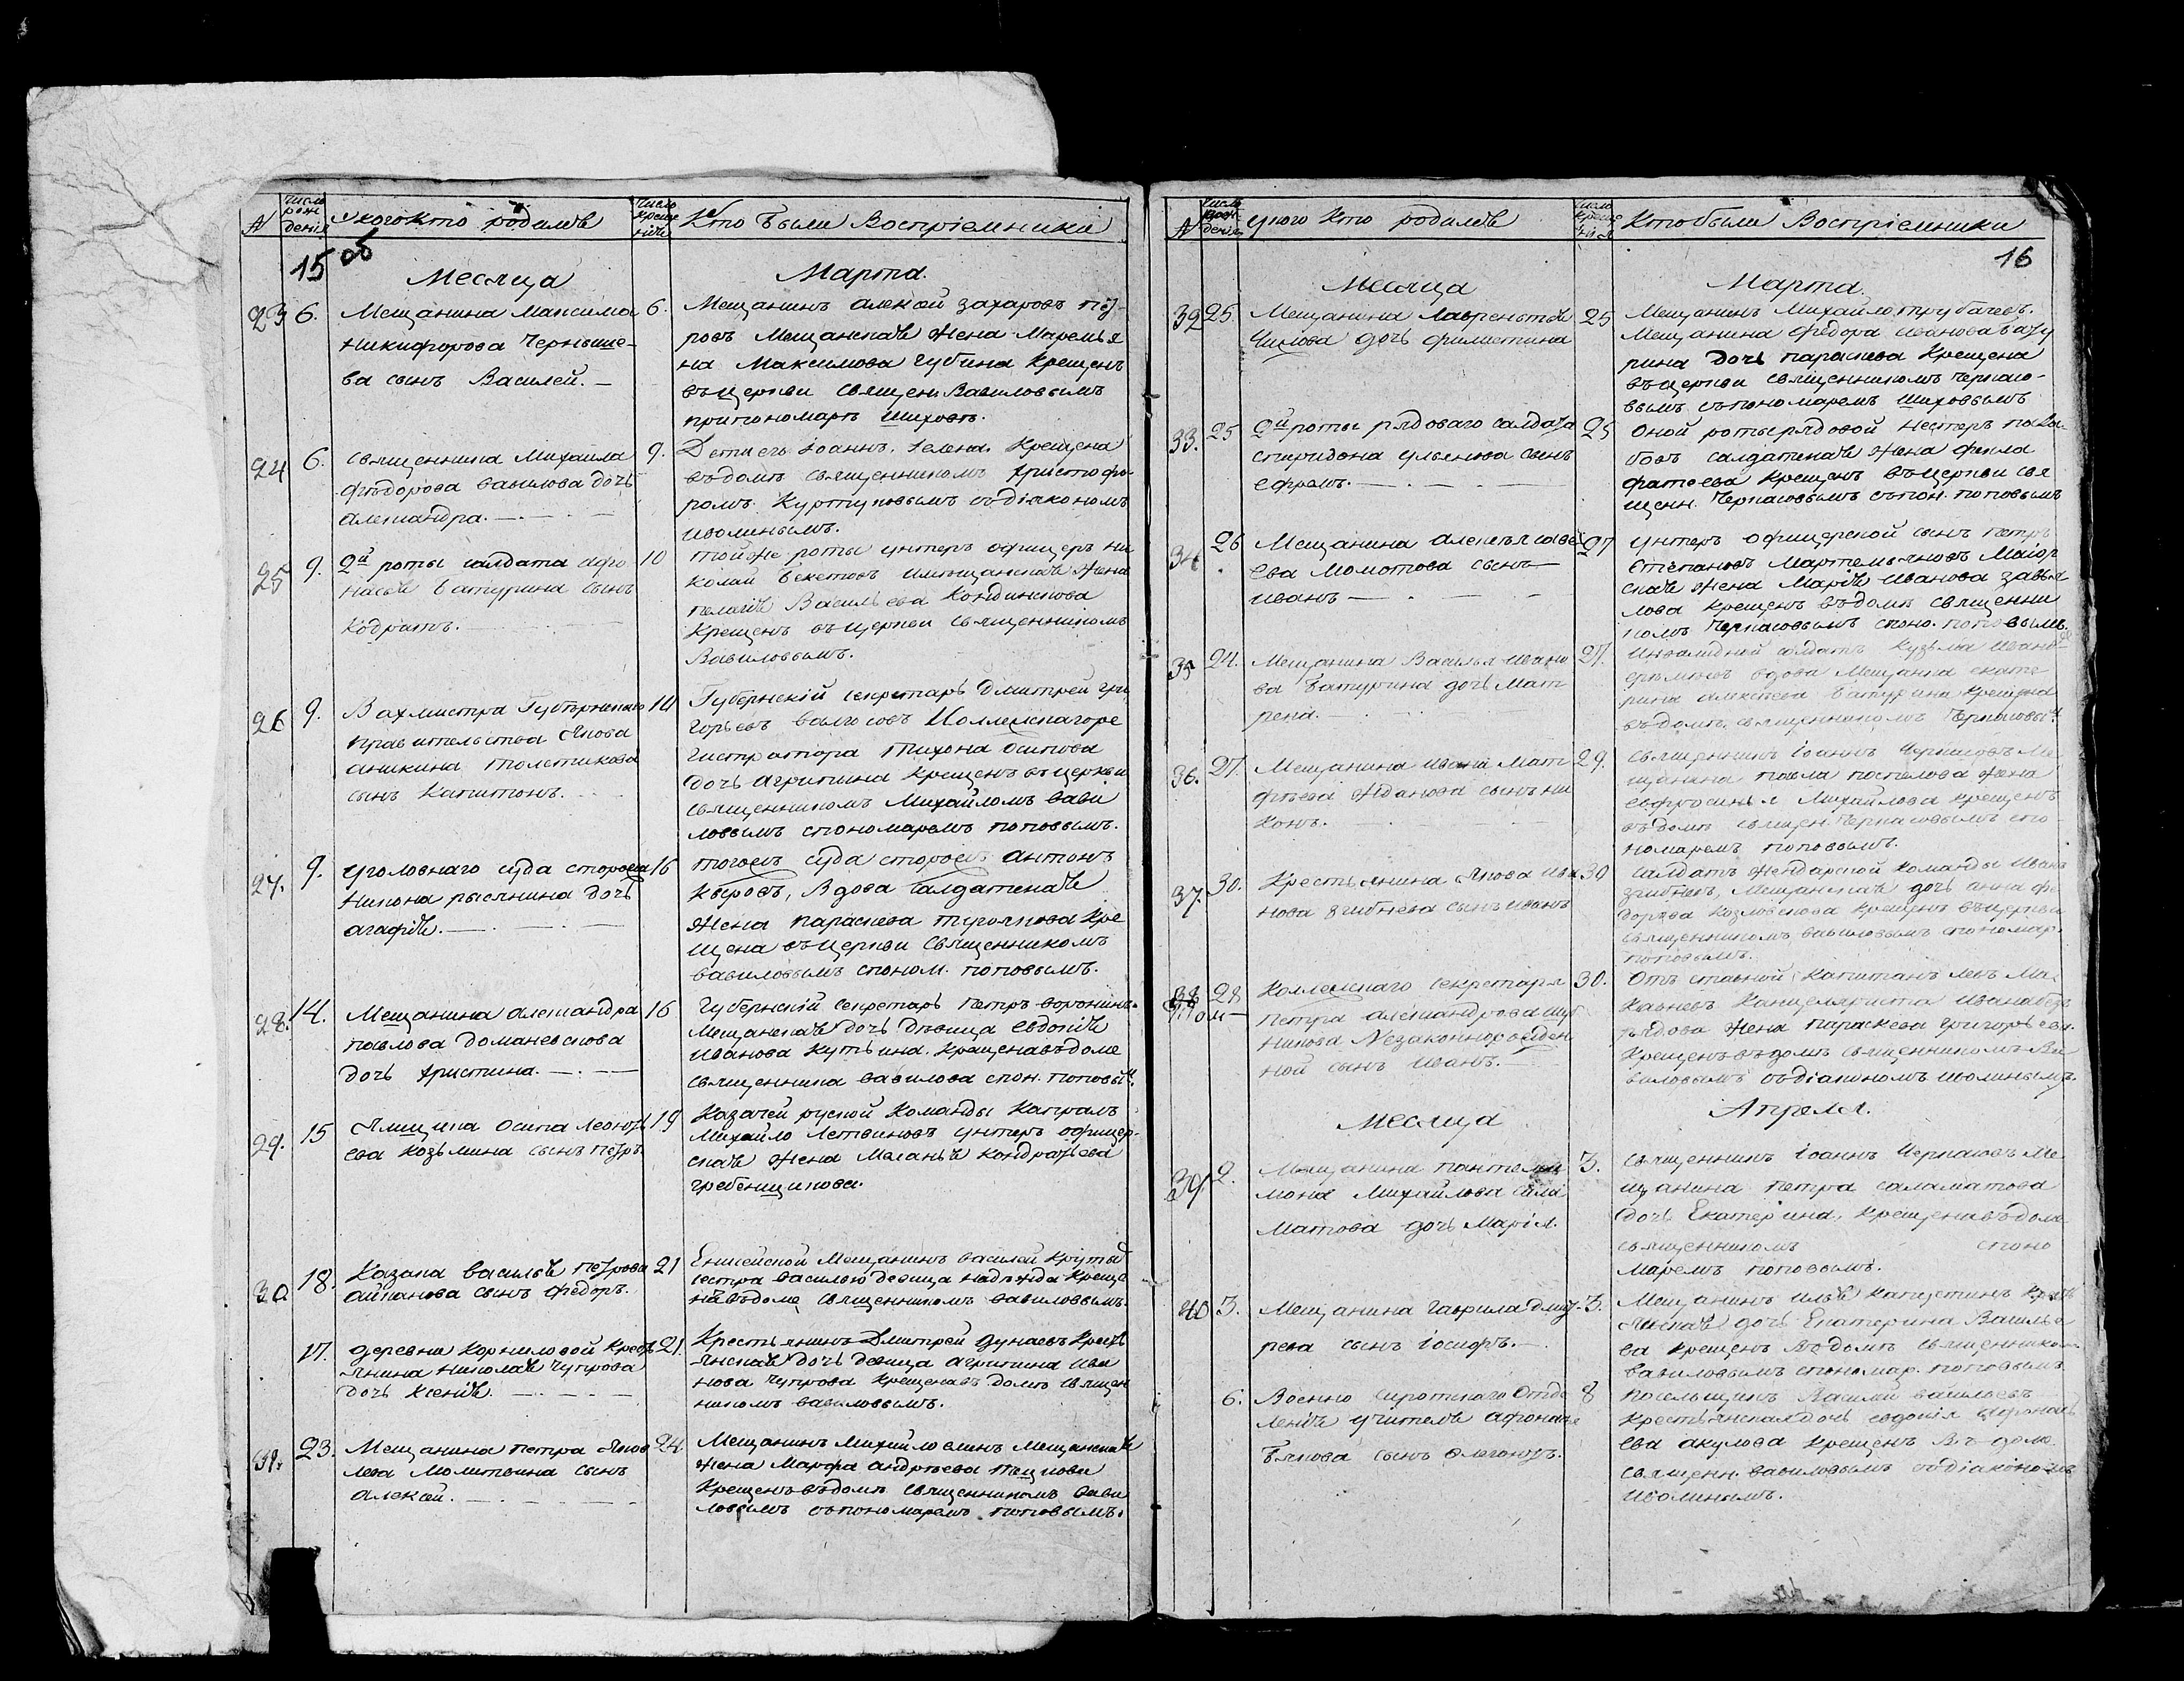 № число рождения у кого кто родился число крещения Кто были Восприемники
15 об
Месяца Марта.
23 6. Мещанина Максима
Никифорова Черныше-
ва сынъ Василей. —
6. Мещанинъ Алексѣй Захаровъ Пет-
ровъ Мещанская жена Маремья
на Максимова Губина Крещенъ
въ церкви Священ. Вавиловымъ
при пономарѣ Шиховѣ.
24 6. священника Михаила
Фѣдорова Вавилова дочь
Александра.
9. Дети его Иоаннъ, Іелена. Крещена
въ домѣ священникомъ Христофо-
ромъ Куртуковымъ съ діакономъ
Иволинымъ.
25 9. 2й роты салдата Афо
насья Батурина сынъ
Кодратъ.
10 тойже роты унтеръ офицеръ Ни
колай Бекетовъ и мещанская жена
Пелагия Васильева Кондинскова
Крещенъ въ церкви Священникомъ
Вавиловымъ.
26 9. Вахмистра Губернскаго
правительства Якова
Аникина Толстикова
сынъ Капитонъ.
14 Губернскій секретарь Дмитрей Гри
горьевъ Коллежскагоре
гистратора Тихона Осипова
дочь Агрипина Крещенъ въ церкви
священникомъ Михайломъ Вави
ловымъ с пономаремъ Поповымъ.
27. 9. Уголовнаго суда сторожа
Никона дочь
Агафія.
16 тогожъ суда сторожъ Антонъ
Кыровъ, Вдова Салдатская
Жена Параскева Кре
щена въ церкви Священникомъ
Вавиловымъ с поном. Поповымъ.
28. 14. Мещанина Александра
Павлова Доманевскова
дочь Христина.
16 Губернскій секретарь Петръ Воронинъ.
Мещанская дочь дѣвица Евдокія
Иванова Кутьина. Крещена въ доме
священника Вавилова с пон. Поповымъ.
29. 15 Ямщика Осипа Леонть
ева Козьмина сынъ Петръ.
19 Казачей руской Команды Капралъ
Михайло Летвиновъ унтеръ офицер-
ская жена Меланья Кондратьева
Гребенщикова.
30 18. Казака Василья Петрова
сынъ Федоръ.
21 Енисейской Мещанинъ Василей Крутый
сестра Василью девица Надежда Креще
на въ доме священникомъ Вавиловымъ.
17. деревни Корниловой Кресть
янина Николая Чупрова
дочь Ксенія.
21. Крестьянинъ Дмитрей Дунаевъ Кресть
янская дочь девица Агрипина Ива
нова Чупрова Крещена въ домѣ священ
никомъ Вавиловымъ.
31. 23. Мещанина Петра Яков
лева Молитвина сынъ
Алексѣй.
24 Мещанинъ Михайло Мещанская
жена Марфа Андреева
Крещенъ въ домѣ священникомъ Вави
ловымъ съ пономаремъ Поповымъ.
№ число рождения у кого кто родился число крещения Кто были Восприемники
16
Месяца Марта.
32 25. Мещанина Лаврентья
Чилова дочь Филистина
25 Мещанинъ Михайло Трубачевъ.
Мещанина Федора Иванова Бату
рина дочь Параскева Крещена
въ церкви священникомъ Черкасо-
вымъ съ пономаремъ Шиховымъ
33. 25 2й роты рядоваго салдата
Спиридона Ульянова сынъ
Ефремъ.
25 Оной роты рядовой Нестеръ
салдатская жена Фекла
Фатеева Крещенъ въ церкви свя
щенн. Черкасовымъ съ пон. Поповымъ
34 26 Мещанина Алексѣя Савель
ева Момотова сынъ
Иванъ
27 Унтеръ офицерской сынъ Петръ
Степановъ Мартемьяновъ Маіор
ская жена Марія Иванова Завья
лова Крещенъ въ домѣ священни
комъ Черкасовымъ с поно. Поповымъ.
35 24. Мещанина Василья Ивано
ва Батурина дочь Мат
рена.
27. Инвалидной солдатъ Кузьма
вдова Мещанка Екате
рина Алексѣева Батурина Крещена
въ домѣ священникомъ Черкасовымъ.
36. 27. Мещанина Ивана Мат
фѣева Жданова сынъ Ни
конъ.
29. священникъ Іоаннъ Черкасовъ Ме
щанина Павла Поспелова жена
Евфросинья Михайлова Крещенъ
въ домѣ священ. Черкасовымъ с по
номаремъ Поповымъ.
37. 30. Крестьянина Якова Ива
нова Згибнева сынъ Иванъ
30 Салдатъ Жендарской Команды Иванъ
Згибневъ, Мещанская дочь Анна Фе
дорова Козловскова Крещенъ въ церкви
священникомъ Вавиловымъ с пономар.
Поповымъ.
38 28 Коллежскаго Секретаря
Петра Александрова
Незаконнорожден
ной сынъ Иванъ.
30. Отъставной Капитанъ Левъ Ма
Канцеляриста Ивана
жена Параскева Григорьева.
Крещенъ въ домѣ священникомъ Ва
виловымъ съ діакономъ Иволинымъ.
Месяца Апреля.
39 2. Мещанина Пантеле
мона Михайлова Сала
матова дочь Марія.
3. священникъ Іоаннъ Черкасовъ Ме
щанина Петра Саламатова
дочь Екатерина, Крещена въ доме
священникомъ споно
маремъ Поповымъ.
40 3. Мещанина Гаврила Дмит-
рева сынъ Іосифъ.
3. Мещанинъ Илья Капустинъ Кресть
янская дочь Екатерина Василье
ва Крещенъ въ домѣ священником
Вавиловымъ с пономар. Поповымъ
6. Военно сиротскаго Отде
ленія учителя Афонасе
Бякова сынъ
8 Посельщикъ Василей Васильевъ
Крестьянская дочь Евдокія Афонась
ева Акулова Крещенъ въ доме
священн. Вавиловымъ съ діакономъ
Иволинымъ.